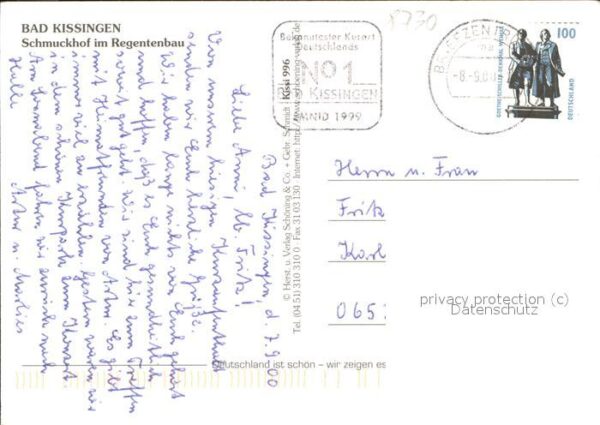 BAD KISSINGEN
Schmuckhof im Regentenbau
8730
Bekanntester Kurort
Deutschlands
No 1
BAD KISSINGEN
EMNID 1999
BRIEFZENTR
-8.-9.00
100
DEUTSCHLAND
GOETHE-SCHILLER-DENKMAL WEIMAR
Bad Kissingen, d. 7.9.00
Liebe Anni, lb. Fritz!
Von unserem hiesigen Kuraufenthalt
senden wir Euch herzliche Grüße.
Wir haben lange nichts von Euch gehört
und hoffen, daß es Euch gesundheitlich
soweit gut geht. Wir sind hier zum Treffen
mit Heimatfreunden von Artur. Es gibt
immer viel zu erzählen. Gestern waren wir
in dem schönen Kurpark zum Konzert.
Am Sonnabend fahren wir zurück nach
Halle
Artur u. Marlies
Kissi 996
© Herst. u. Verlag Schöning & Co. + Gebr. Schmidt
Tel. (04 51) 310 310 0 · Fax 31 03 130 · Internet: http://www.schoening-verlag.de
Herrn u. Frau
Fritz
Karl
065
privacy protection (c)
Datenschutz
Deutschland ist schön – wir zeigen es